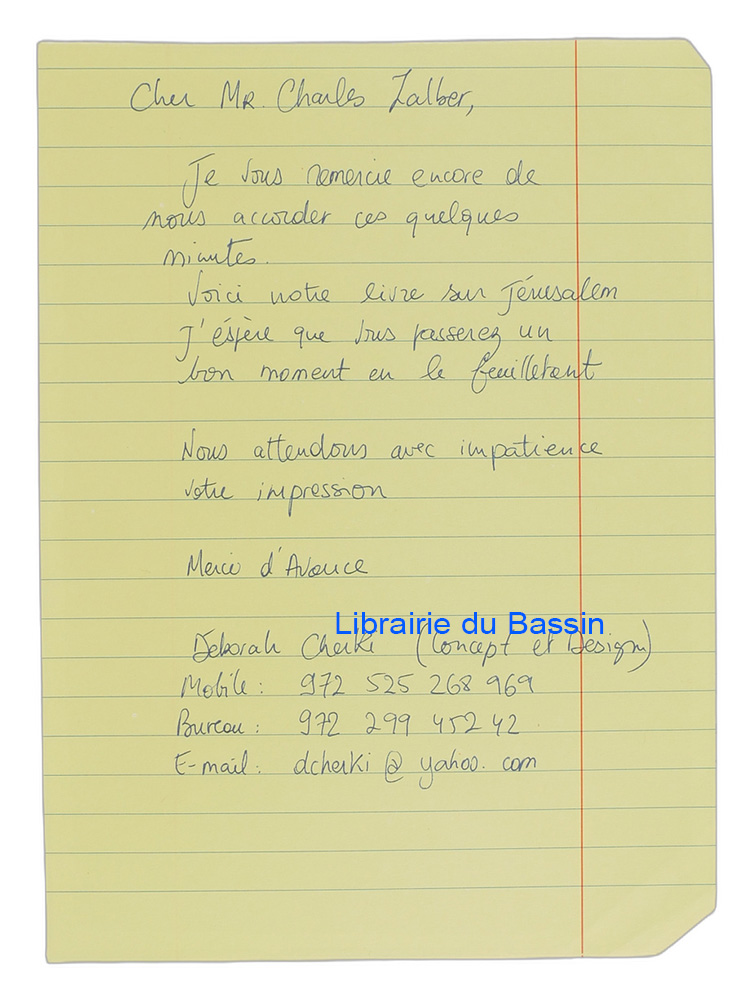 Cher MR. Charles Zalber,
Je vous remercie encore de
nous accorder ces quelques
minutes.
Voici notre livre sur Jérusalem
J'éspère que vous passerez un
bon moment en le feuilletant
Nous attendons avec impatience
votre impression
Merci d'Avance
Librairie du Bassin
Deborah Cherki (Concept et Design)
Mobile : 972 525 268 969
Bureau : 972 299 452 42
E-mail : dcherki@yahoo.com